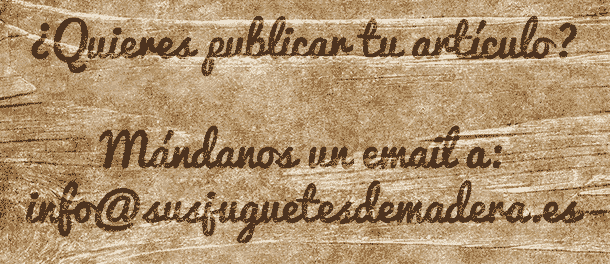 ¿Quieres publicar tu artículo?
Mándanos un email a:
info@susjuguetesdemadera.es